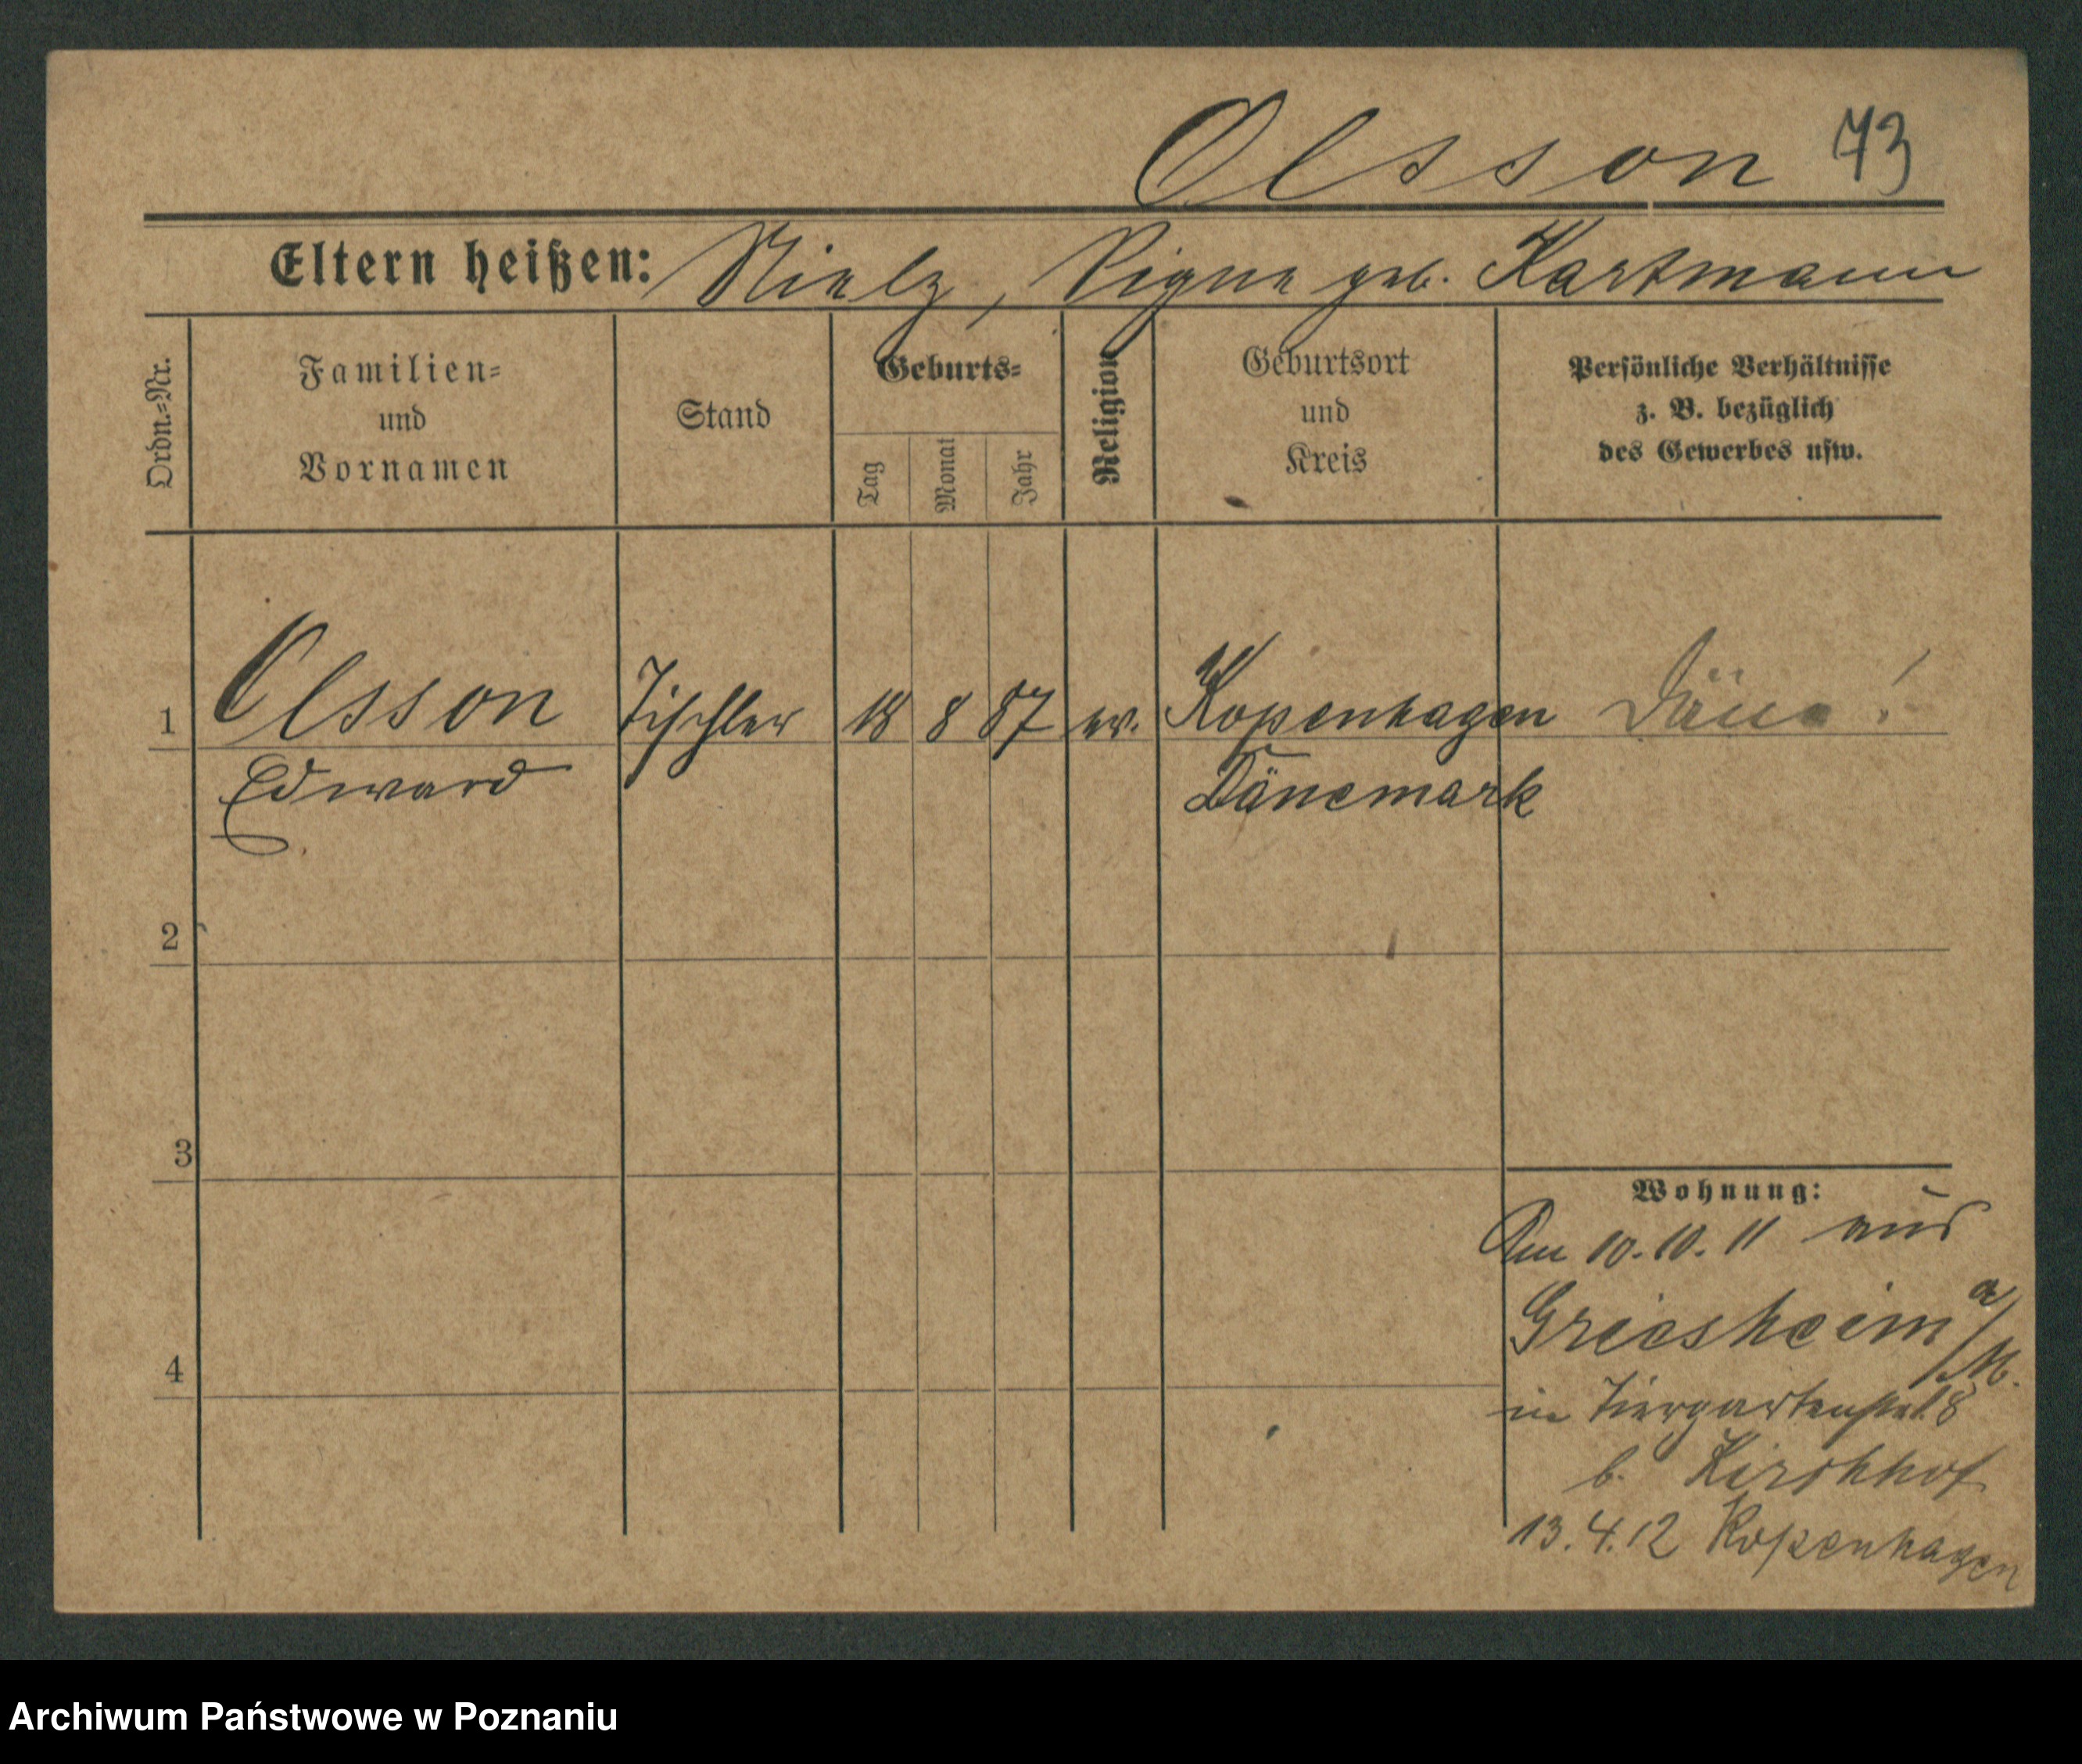 Olsson 73
Eltern heißen: Nielz, Signe geb. Hartmann
Ordn.=Nr.
Familien=
und
Vornamen
Stand
Geburts=
Tag
Monat
Jahr
Religion
Geburtsort
und
Kreis
Persönliche Verhältnisse
z. B. bezüglich
des Gewerbes usw.
1 Olsson Tischler 18 8 87 ev. Kopenhagen Däne!
Edward Dänemark
2
3
4
Wohnung:
Am 10.10.11 aus
Griesheim a/M.
in Tiergartenstr. 8
b. Kirchhof
13.4.12 Kopenhagen
Archiwum Państwowe w Poznaniu